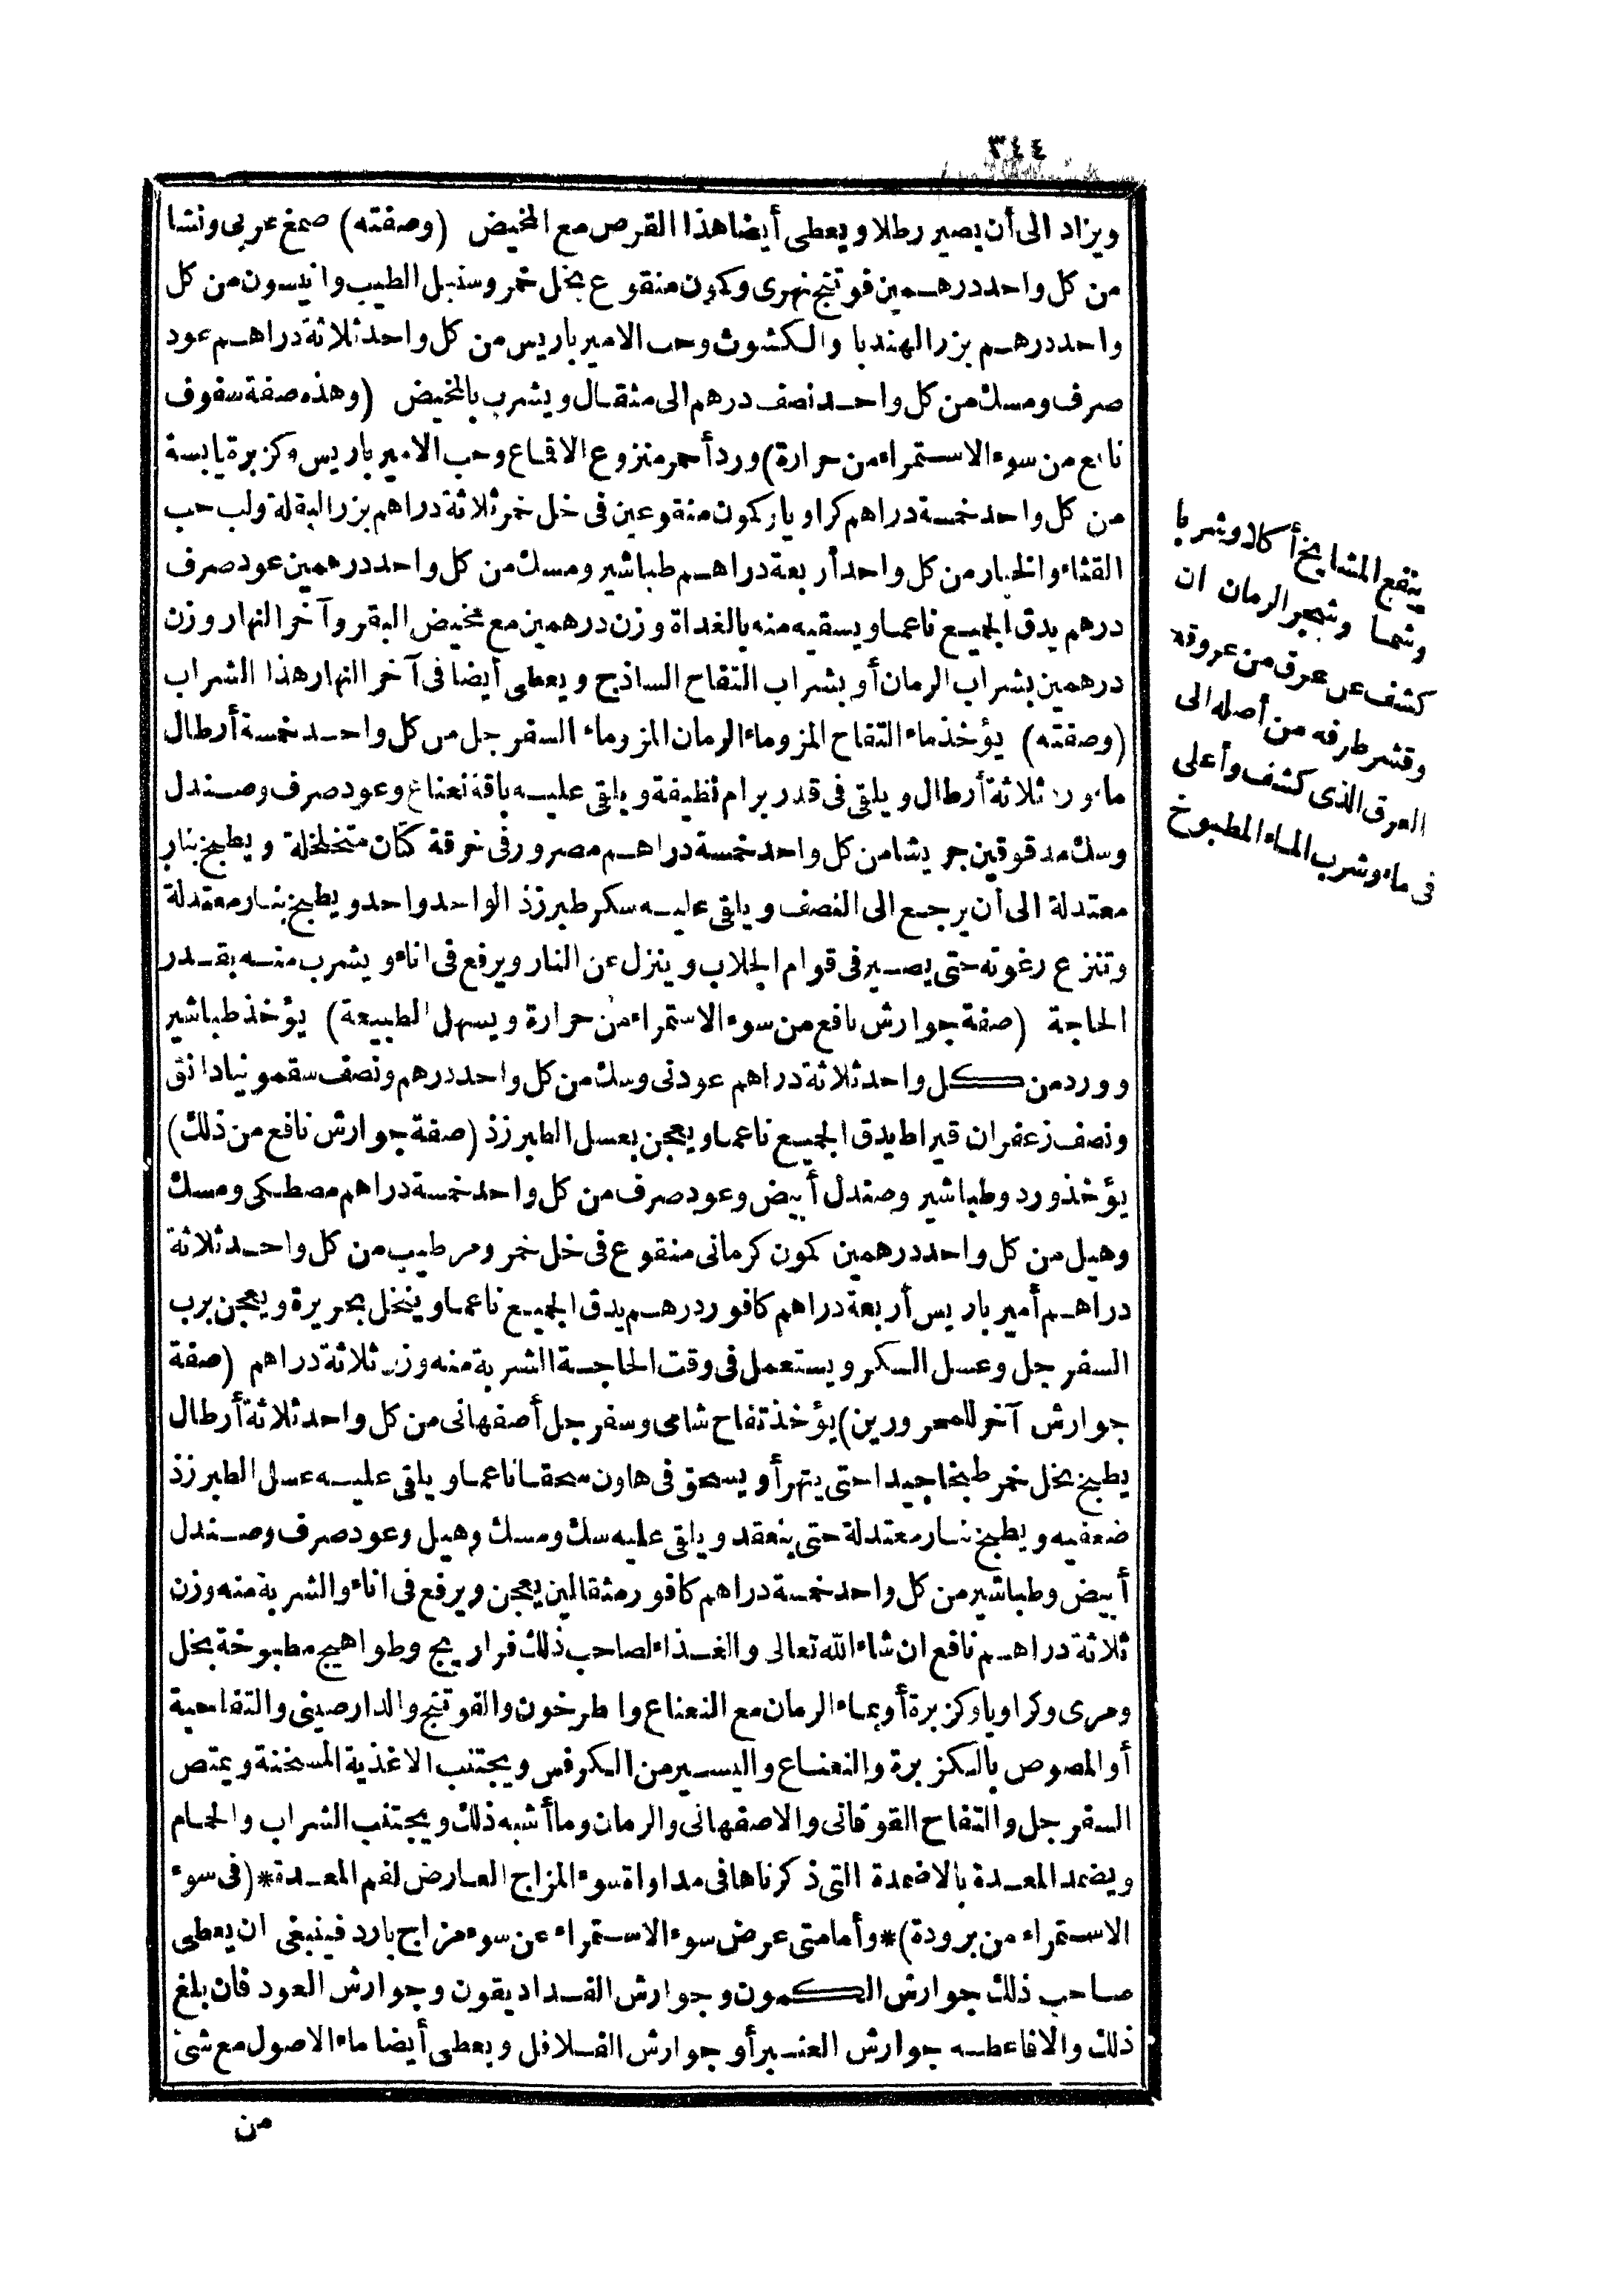 ٣٤٤
ويزاد الى أن يصير رطلا ويعطى أيضا هذا القرص مع المخيض (وصفته) صمغ عربى ونشا
من كل واحد درهمين فوتنج نهرى وكمون منقوع بخل خمر وسنبل الطيب وانيسون من كل
واحد درهم بزر الهندبا والكشوث وحب الامير باريس من كل واحد ثلاثة دراهم عود
صرف ومسك من كل واحد نصف درهم الى مثقال ويشرب بالمخيض (وهذه صفة سفوف
نافع من سوء الاستمراء من حرارة) ورد أحمر منزوع الاقماع وحب الامير باريس وكزبرة يابسة
من كل واحد خمسة دراهم كراويا وكمون منقوعين فى خل خمر ثلاثة دراهم بزر البقلة ولب حب
القثاء والخيار من كل واحد أربعة دراهم طباشير ومسك من كل واحد درهمين عود صرف
درهم يدق الجميع ناعما ويسقيه منه بالغداة وزن درهمين مع مخيض البقر وآخر النهار وزن
درهمين بشراب الرمان أو بشراب التفاح الساذج ويعطى أيضا فى آخر النهار هذا الشراب
(وصفته) يؤخذ ماء التفاح المز وماء الرمان المز وماء السفرجل من كل واحد خمسة أرطال
ماء ورد ثلاثة أرطال ويلقى فى قدر برام نظيفة ويلقى عليه باقة نعناع وعود صرف وصندل
وسك مدقوقين جريشا من كل واحد خمسة دراهم مصرور فى خرقة كتان متخلخلة ويطبخ بنار
معتدلة الى أن يرجع الى النصف ويلقى عليه سكر طبرزذ الواحد واحد ويطبخ بنار معتدلة
وتنزع رغوته حتى يصير فى قوام الجلاب وينزل عن النار ويرفع فى اناء ويشرب منه بقدر
الحاجة (صفة جوارش نافع من سوء الاستمراء من حرارة ويسهل الطبيعة) يؤخذ طباشير
وورد من كل واحد ثلاثة دراهم عود نى وسك من كل واحد درهم ونصف سقمونيا دانق
ونصف زعفران قيراط يدق الجميع ناعما ويعجن بعسل الطبرزذ (صفة جوارش نافع من ذلك)
يؤخذ ورد وطباشير وصندل أبيض وعود صرف من كل واحد خمسة دراهم مصطكى ومسك
وهيل من كل واحد درهمين كمون كرمانى منقوع فى خل خمر ومر طيب من كل واحد ثلاثة
دراهم أمير باريس أربعة دراهم كافور درهم يدق الجميع ناعما وينخل بحريرة ويعجن برب
السفرجل وعسل السكر ويستعمل فى وقت الحاجة الشربة منه وزن ثلاثة دراهم (صفة
جوارش آخر للمحرورين) يؤخذ تفاح شامى وسفرجل أصفهانى من كل واحد ثلاثة أرطال
يطبخ بخل خمر طبخا جيدا حتى يتهرأ ويسحق فى هاون سحقا ناعما ويلقى عليه عسل الطبرزذ
ضعفيه ويطبخ بنار معتدلة حتى ينعقد ويلقى عليه سك ومسك وهيل وعود صرف وصندل
أبيض وطباشير من كل واحد خمسة دراهم كافور مثقالين يعجن ويرفع فى اناء والشربة منه وزن
ثلاثة دراهم نافع ان شاء الله تعالى والغذاء لصاحب ذلك فراريج وطواهيج مطبوخة بخل
ومرى وكراويا وكزبرة أو بماء الرمان مع النعناع والطرخون والفوتنج والدارصينى والتفاحية
أو المصوص بالكزبرة والنعناع واليسير من الكرفس ويجتنب الاغذية المسخنة ويمتص
السفرجل والتفاح القوقانى والاصفهانى والرمان وما أشبه ذلك ويجتنب الشراب والحمام
ويضمد المعدة بالاضمدة التى ذكرناها فى مداواة سوء المزاج العارض لفم المعدة *(فى سوء
الاستمراء من برودة)* وأما متى عرض سوء الاستمراء عن سوء مزاج بارد فينبغى ان يعطى
صاحب ذلك جوارش الكمون وجوارش الفنداديقون وجوارش العود فان بلغ
ذلك والا فاعطه جوارش العنبر أو جوارش الفلافل ويعطى أيضا ماء الاصول مع شئ
من
ينفع المشايخ أكلا وشربا
وشما وشجر الرمان ان
كشف عن عرق من عروقه
وقشر طرفه من أصله الى
العرق الذى كشف وأعلى
فى ماء وشرب الماء المطبوخ